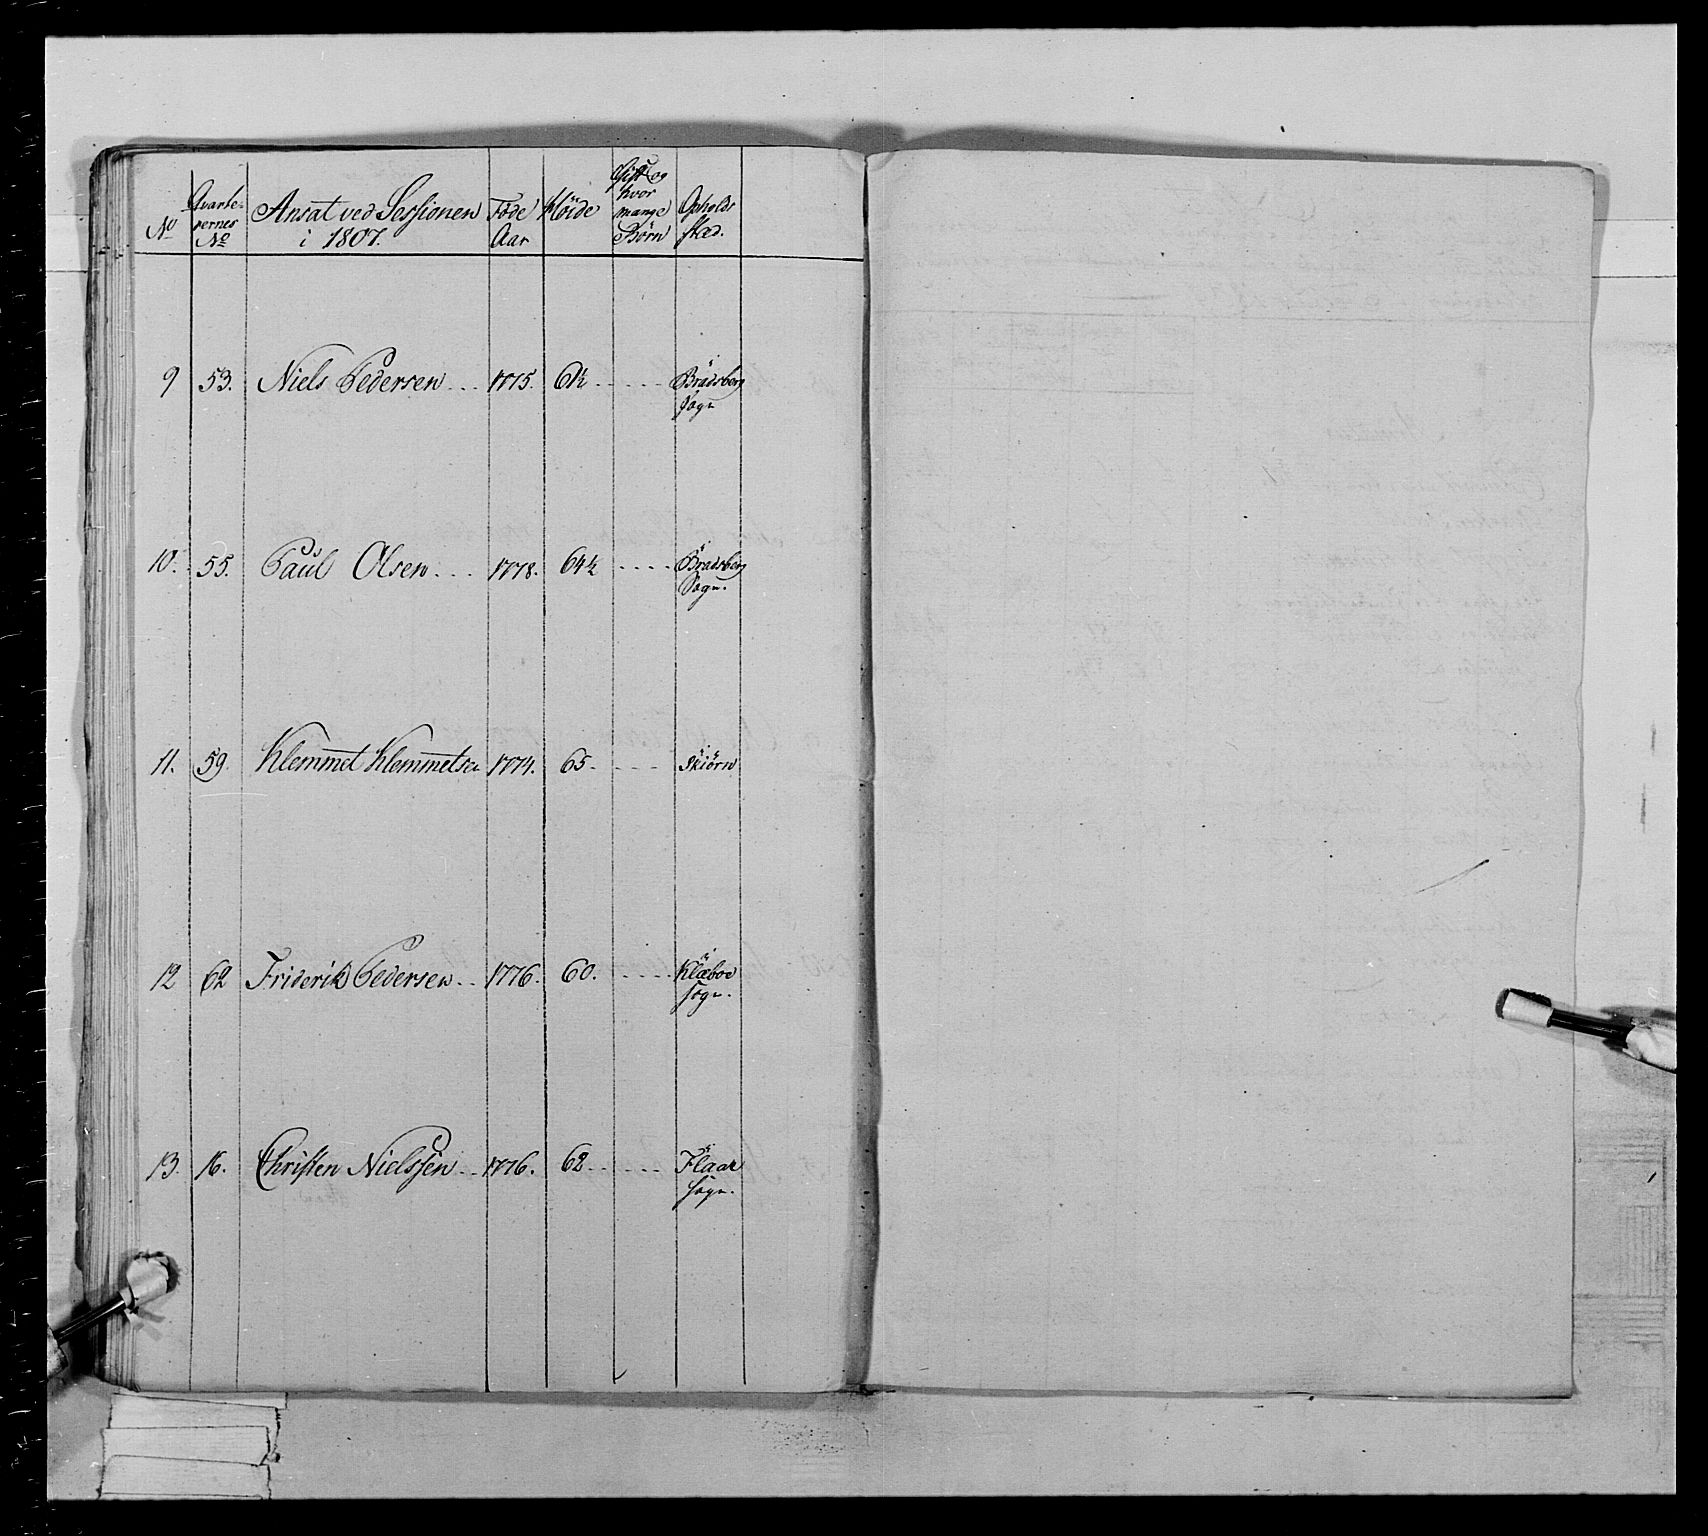 No
Qvarte-
rernes
No
Ansat ved Sessionen
i 1807.
Föde
Aar
Höide
Gift og
hvor
mange
Börn
Opholds
stæd.
9 53. Niels Pedersen . . . 1775. 61½ . . . . . Brådsberg
Sogn
10. 55. Paul Olsen . . . 1778. 64½ . . . . Brådsberg
Sogn.
11. 59. Klemmet Klemmetsen 1774. 65 . . . . . Skiörn
12 62 Friderik Pedersen . . 1776. 60. . . . . Klæboe
Sogn.
13. 16. Christen Nielssen . . 1776. 62 . . . . . Flaae
Sogn.